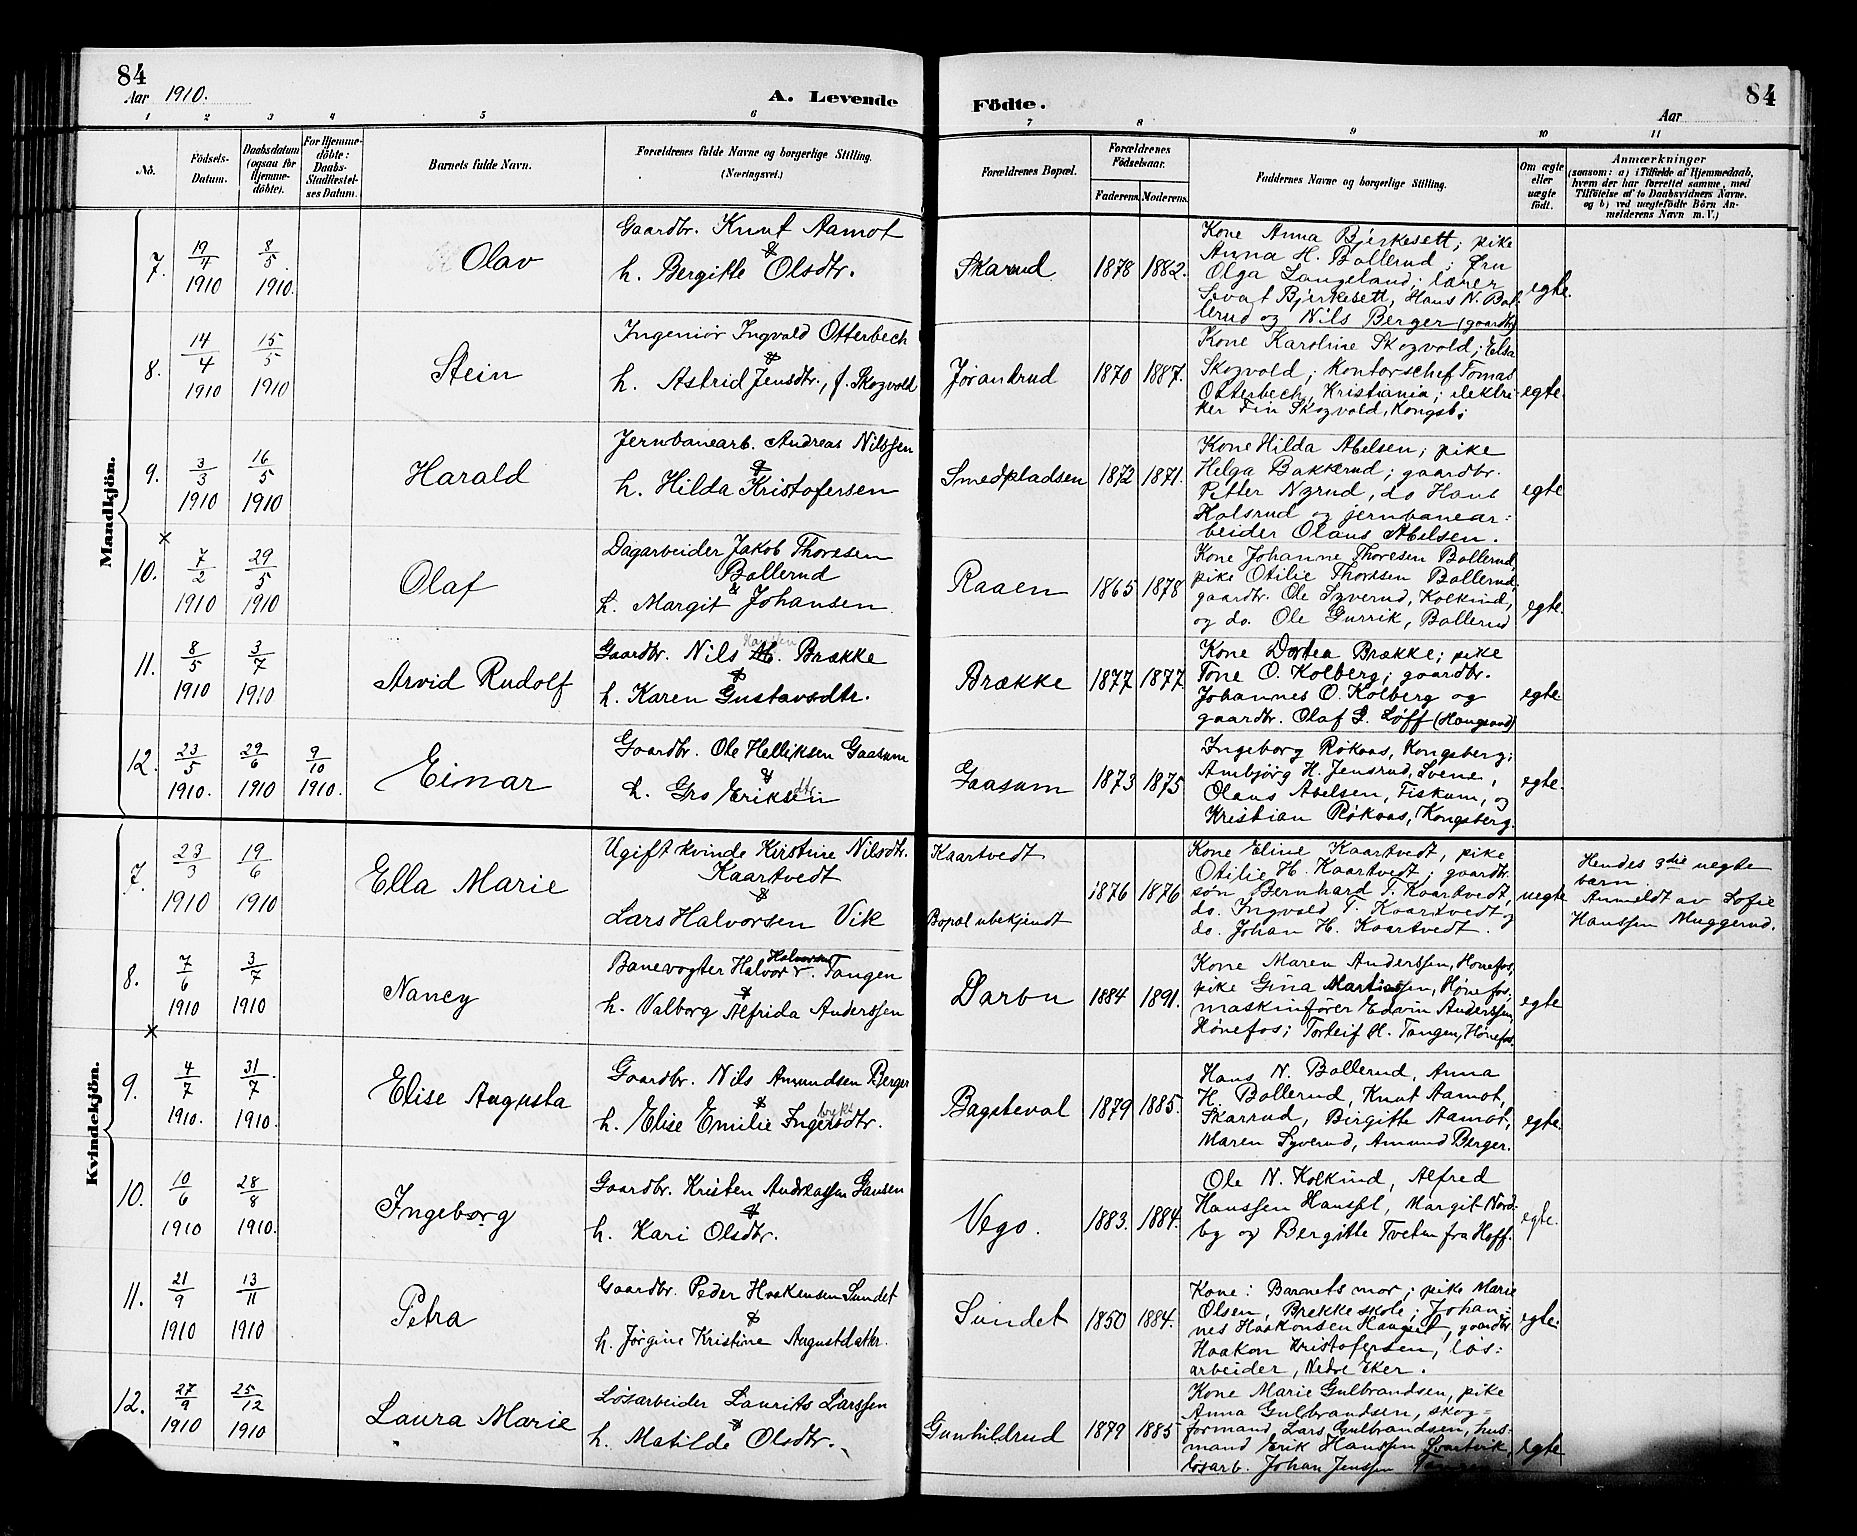 84
Aar 1910.
A. Levende
Födte.
Aar
84
1 2 3 4 5 6 7 8 9 10 11
No.
Födsels-
Datum.
Daabsdatum
(ogsaa for
Hjemme-
döbte).
For Hjemme-
döbte:
Daabs-
Stadfæstel-
ses Datum.
Barnets fulde Navn.
Forældrenes fulde Navne og borgerlige Stilling.
(Næringsvei.)
Forældrenes Bopæl.
Forældrenes
Födselsaar.
Faderens. Moderens.
Faddernes Navne og borgerlige Stilling.
Om ægte
eller
uægte
födt.
Anmærkninger
(saasom: a) i Tilfælde af Hjemmedaab,
hvem der har forrettet samme, med
Tilföielse af to Daabsvidners Navne.
og b) ved uægtefödte Börn An-
melderens Navn m. V.)
Mandkjön.
7.
19/4
1910
8/5
1910.
Olav
Gaardbr. Knut Aamot
&
h. Bergitte Olsdtr.
Skarrud
1878
1882.
Kone Anna Bjerkesett; pike
Anna H. Bollerud; fru
Olga Langeland; lærer
Sivat Bjerkesett, Hans N. Bol-
lerud og Nils Berger (gaardbr)
egte.
8.
14/4
1910
15/5
1910
Stein
Ingeniør Ingvald Otterbech
&
h. Astrid Jensdtr., f. Skogvold
Jørandrud
1870
1887.
Kone Karoline Skogvold; Elsa
Skogvold; Kontorschef Tomas
Otterbech, Kristiania; elektri-
ker Fin Skogvold, Kongsb;
egte.
9.
3/3
1910
16/5
1910
Harald
Jernbanearb. Andreas Nilssen
&
h. Hilda Kristofersen
Smedpladsen
1872
1871.
Kone Hilda Abelsen; pike
Helga Bakkerud; gaardbr.
Petter Nyrud, do Hans
Holsrud og jernbanear:
beider Olaus Abelsen.
egte
×
10.
7/2
1910
29/5
1910
Olaf
Dagarbeider Jakob Thoresen
Bollerud
&
h. Margit Johansen
Raaen
1865
1878
Kone Johanne Thoresen Bollerud,
pike Otilie Thoresen Bollerud;
gaardbr. Ole Syverud, Kolkind,
og do. Ole Gurrik, Bollerud
egte.
11.
8/5
1910
3/7
1910
Arvid Rudolf
Gaardbr. Nils H. Brække
&
h. Karen Gustavsdtr.
Brække
1877
1877
Kone Dortea Brække; pike
Tone O. Kolberg; gaardbr.
Johannes O. Kolberg og
gaardbr. Olaf G. Løff (Hougsund)
egte.
12.
23/5
1910.
29/6
1910
9/10
1910.
Einar
Gaardbr. Ole Helliksen Gaasum
&
h. Gro Eriksen
dtr.
Gaasum
1873
1875
Ingeborg Røkaas, Kongsberg;
Ambjørg H. Jensrud, Svene,
Olaus Abelsen, Fiskum, og
Kristian Røkaas, Kongsberg.
egte.
Kvindekjön.
7.
23/3
1910
19/6
1910
Ella Marie
Ugift kvinde Kirstine Nilsdtr.
Kaartvedt
&
Lars Halvorsen Vik
Kaartvedt
Bopæl ubekjendt
1876
1876
Kone Eline Kaartvedt, pike
Otilie H. Kaartvedt; gaardbr.
søn Bernhard T. Kaartvedt,
do. Ingvald T. Kaartvedt og
do. Johan H. Kaartvedt.
uegte
Hendes 3die uegte
barn
Anmeldt av Sofie
Hanssen Muggerud.
8.
7/6
1910
3/7
1910
Nancy
Banevogter Halvor Tangen
&
h. Valborg Alfrida Anderssen
Darbu
1884
1891.
Kone Maren Anderssen, Hønefos,
pike Gina Martinssen, Hønefos,
maskinfører Edvin Anderssen,
Hønefos; Torleif H. Tangen, Hønefos.
egte
×
9.
4/7
1910.
31/7
1910.
Elise Augusta
Gaardbr. Nils Amundsen Berger
&
h. Elise Emilie Ingersdtr.
Bagsteval
1879
1885.
Hans N. Bollerud, Anna
H. Bollerud, Knut Aamot,
Skarrud, Birgitte Aamot,
Maren Syverud, Amund Berger.
egte.
10.
10/6
1910
28/8
1910.
Ingeborg
Gaardbr. Kristen Andreassen Hansen
&
h. Kari Olsdtr.
Vego.
1883.
1884.
Ole N. Kolkind, Alfred
Hanssen Hanssl, Margit Nord-
by og Bergitte Tveten fra Hoff.
egte.
11.
21/9
1910
13/11
1910
Petra
Gaardbr. Peder Haakensen Sundet
&
h. Jørgine Kristine Augustdatter.
Sundet
1850
1884.
Kone: Barnets mor; pike Marie
Olsen, Brekke skole; Johan-
nes Haakonsen Hauget, gaardbr
Haakon Kristofersen, løs:
arbeider, Nedre Eker.
egte.
12.
27/9
1910
25/12
1910
Laura Marie
Løsarbeider Laurits Larssen
&
h. Matilde Olsdtr.
Gunhildrud
1879
1885
Kone Marie Gulbrandsen, pike
Anna Gulbrandsen, skog=
formand Lars Gulbrandsen, hus-
mand Erik Hanssen Svartvik,
løsarb. Johan Jenssen
egte